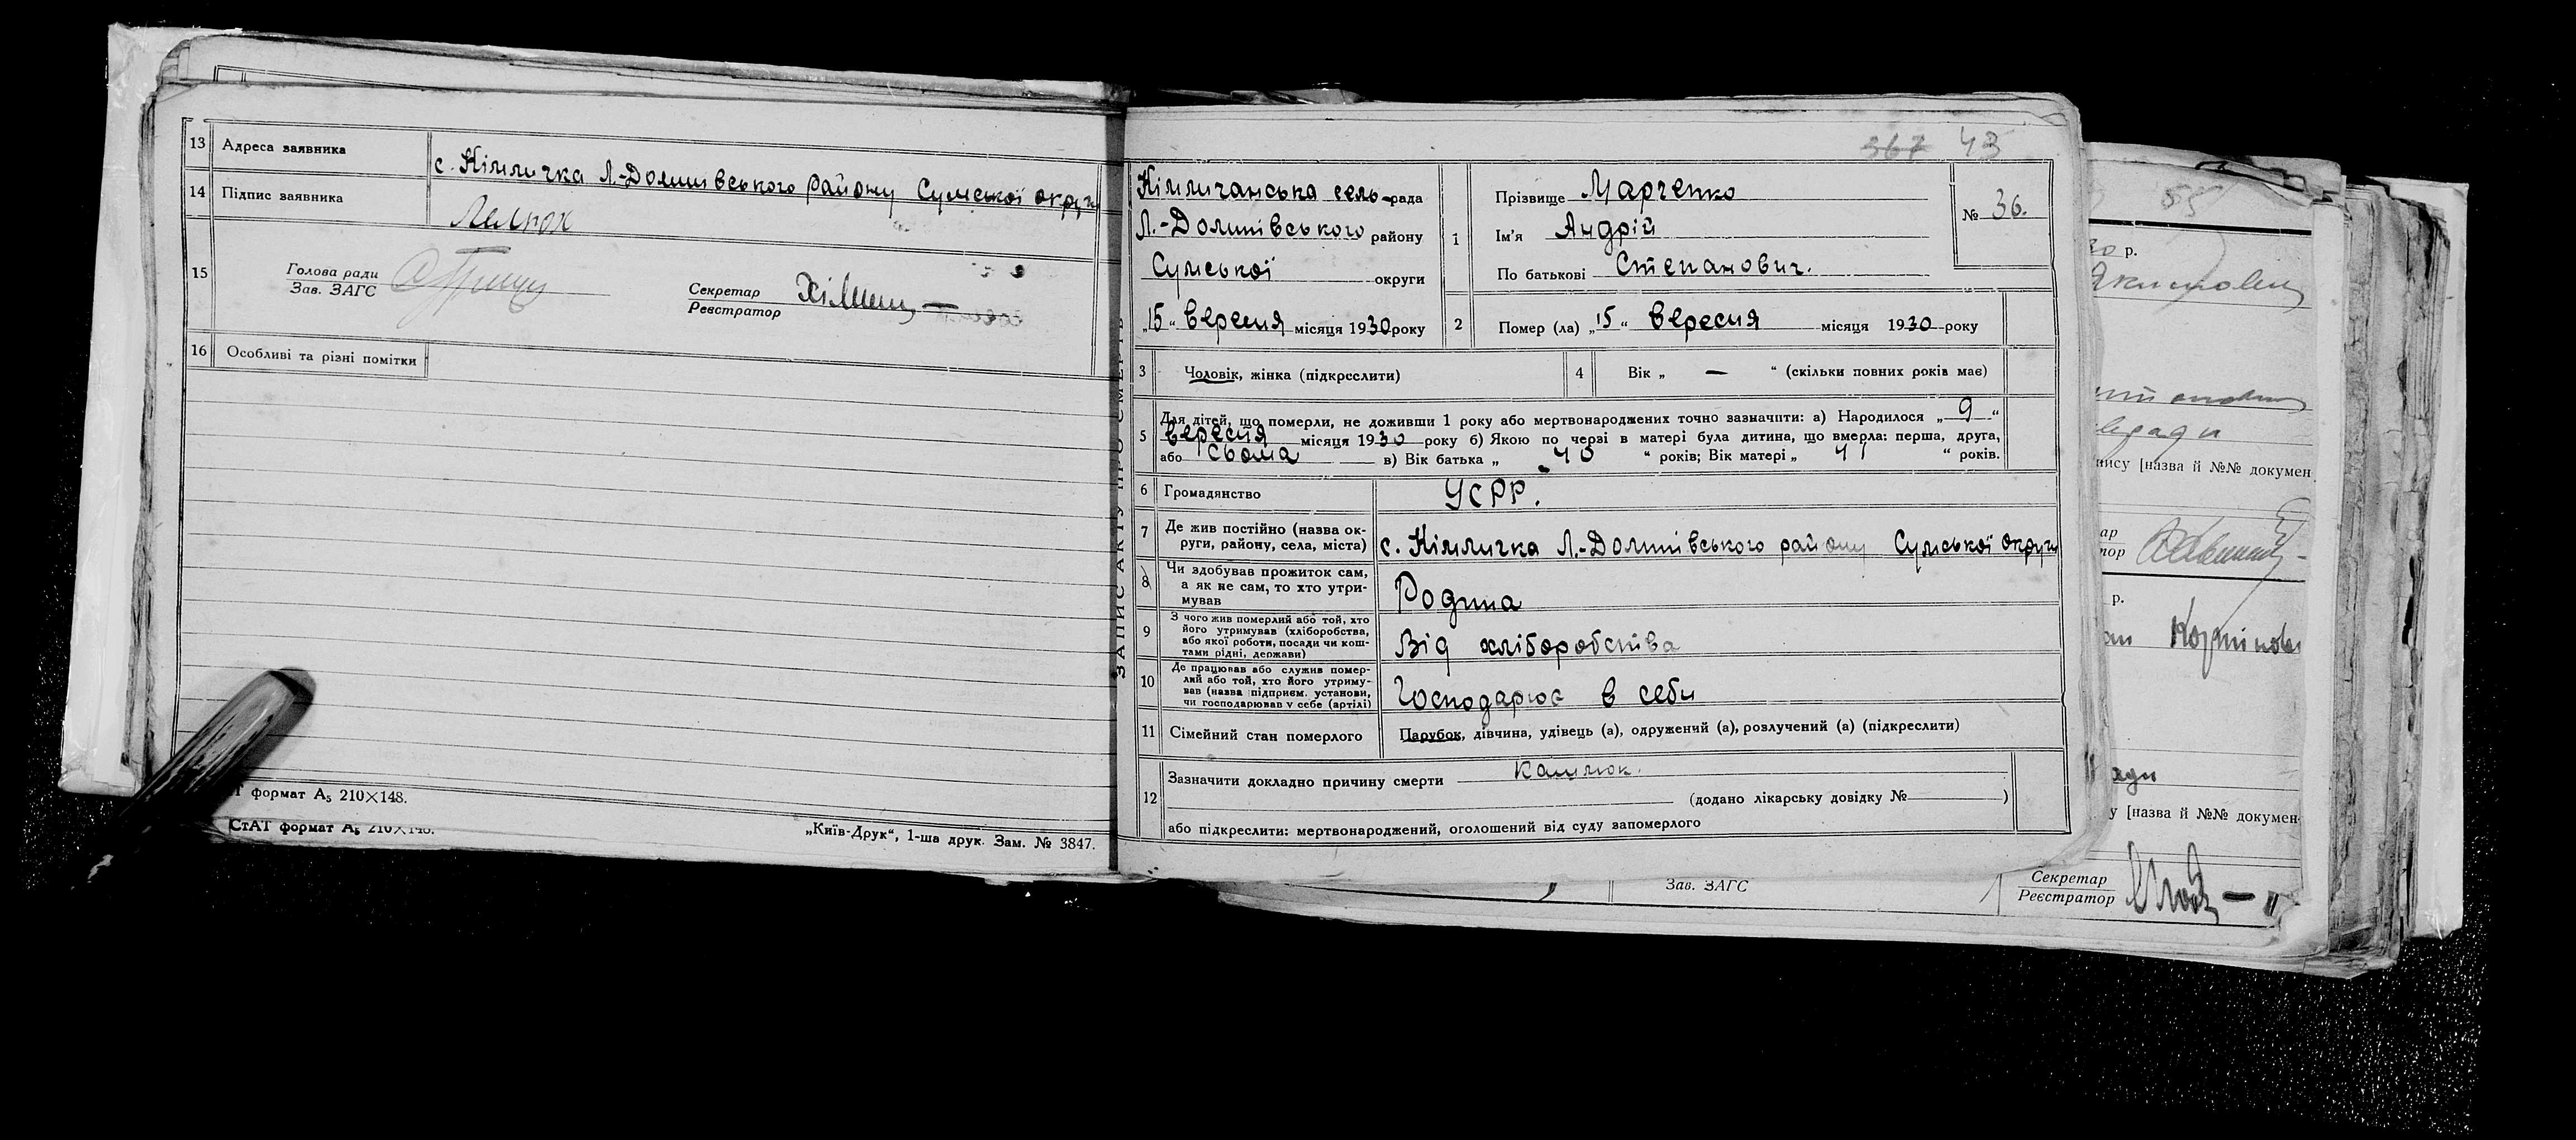 13 Адреса заявника
с. Кімличка Л.-Долинівського району Сумської округи
14 Підпис заявника
15
Голова ради
Зав. ЗАГС
Секретар
Реєстратор
16 Особливі та різні помітки
формат А5 210×148.
СтАТ формат А5 210×148.
„Київ-Друк“, 1-ша друк. Зам. № 3847.
ЗАПИС АКТУ ПРО СМЕРТЬ
367 43
Кімличанська сель-рада
Л.-Долинівського району
Сумської округи
„15“ вересня місяця 1930 року
1
Прізвище Марченко
Ім'я Андрій
По батькові Степанович.
№ 36.
2 Помер (ла) „15“ вересня місяця 1930 року
3 Чоловік, жінка (підкреслити)
4 Вік „ — “ (скільки повних років має)
5 Для дітей, що померли, не доживши 1 року або мертвонароджених точно зазначити: а) Народилося „9“
вересня місяця 1930 року б) Якою по черзі в матері була дитина, що вмерла: перша, друга,
або сьома в) Вік батька „ “ років; Вік матері „ 41 “ років.
6 Громадянство УСРР.
7 Де жив постійно (назва ок-
руги, району, села, міста) с. Кімличка Л.-Долинівського району Сумської округи
8 Чи здобував прожиток сам,
а як не сам, то хто утри-
мував Родина
9 З чого жив померлий або той, хто
його утримував (хліборобства,
або якої роботи, посади чи кош-
тами рідні, держави) Від хліборобства
10 Де працював або служив помер-
лий або той, хто його утриму-
вав (назва підприєм. установи,
чи господарював у себе (артілі) Господарює в себи
11 Сімейний стан померлого Парубок, дівчина, удівець (а), одружений (а), розлучений (а) (підкреслити)
12 Зазначити докладно причину смерти Кашлюк.
(додано лікарську довідку № )
або підкреслити: мертвонароджений, оголошений від суду запомерлого
55
30 р.
пису [назва й №№ докумен
ар
тор
р.
ади
у [назва й №№ докумен-
Зав. ЗАГС
Секретар
Реєстратор